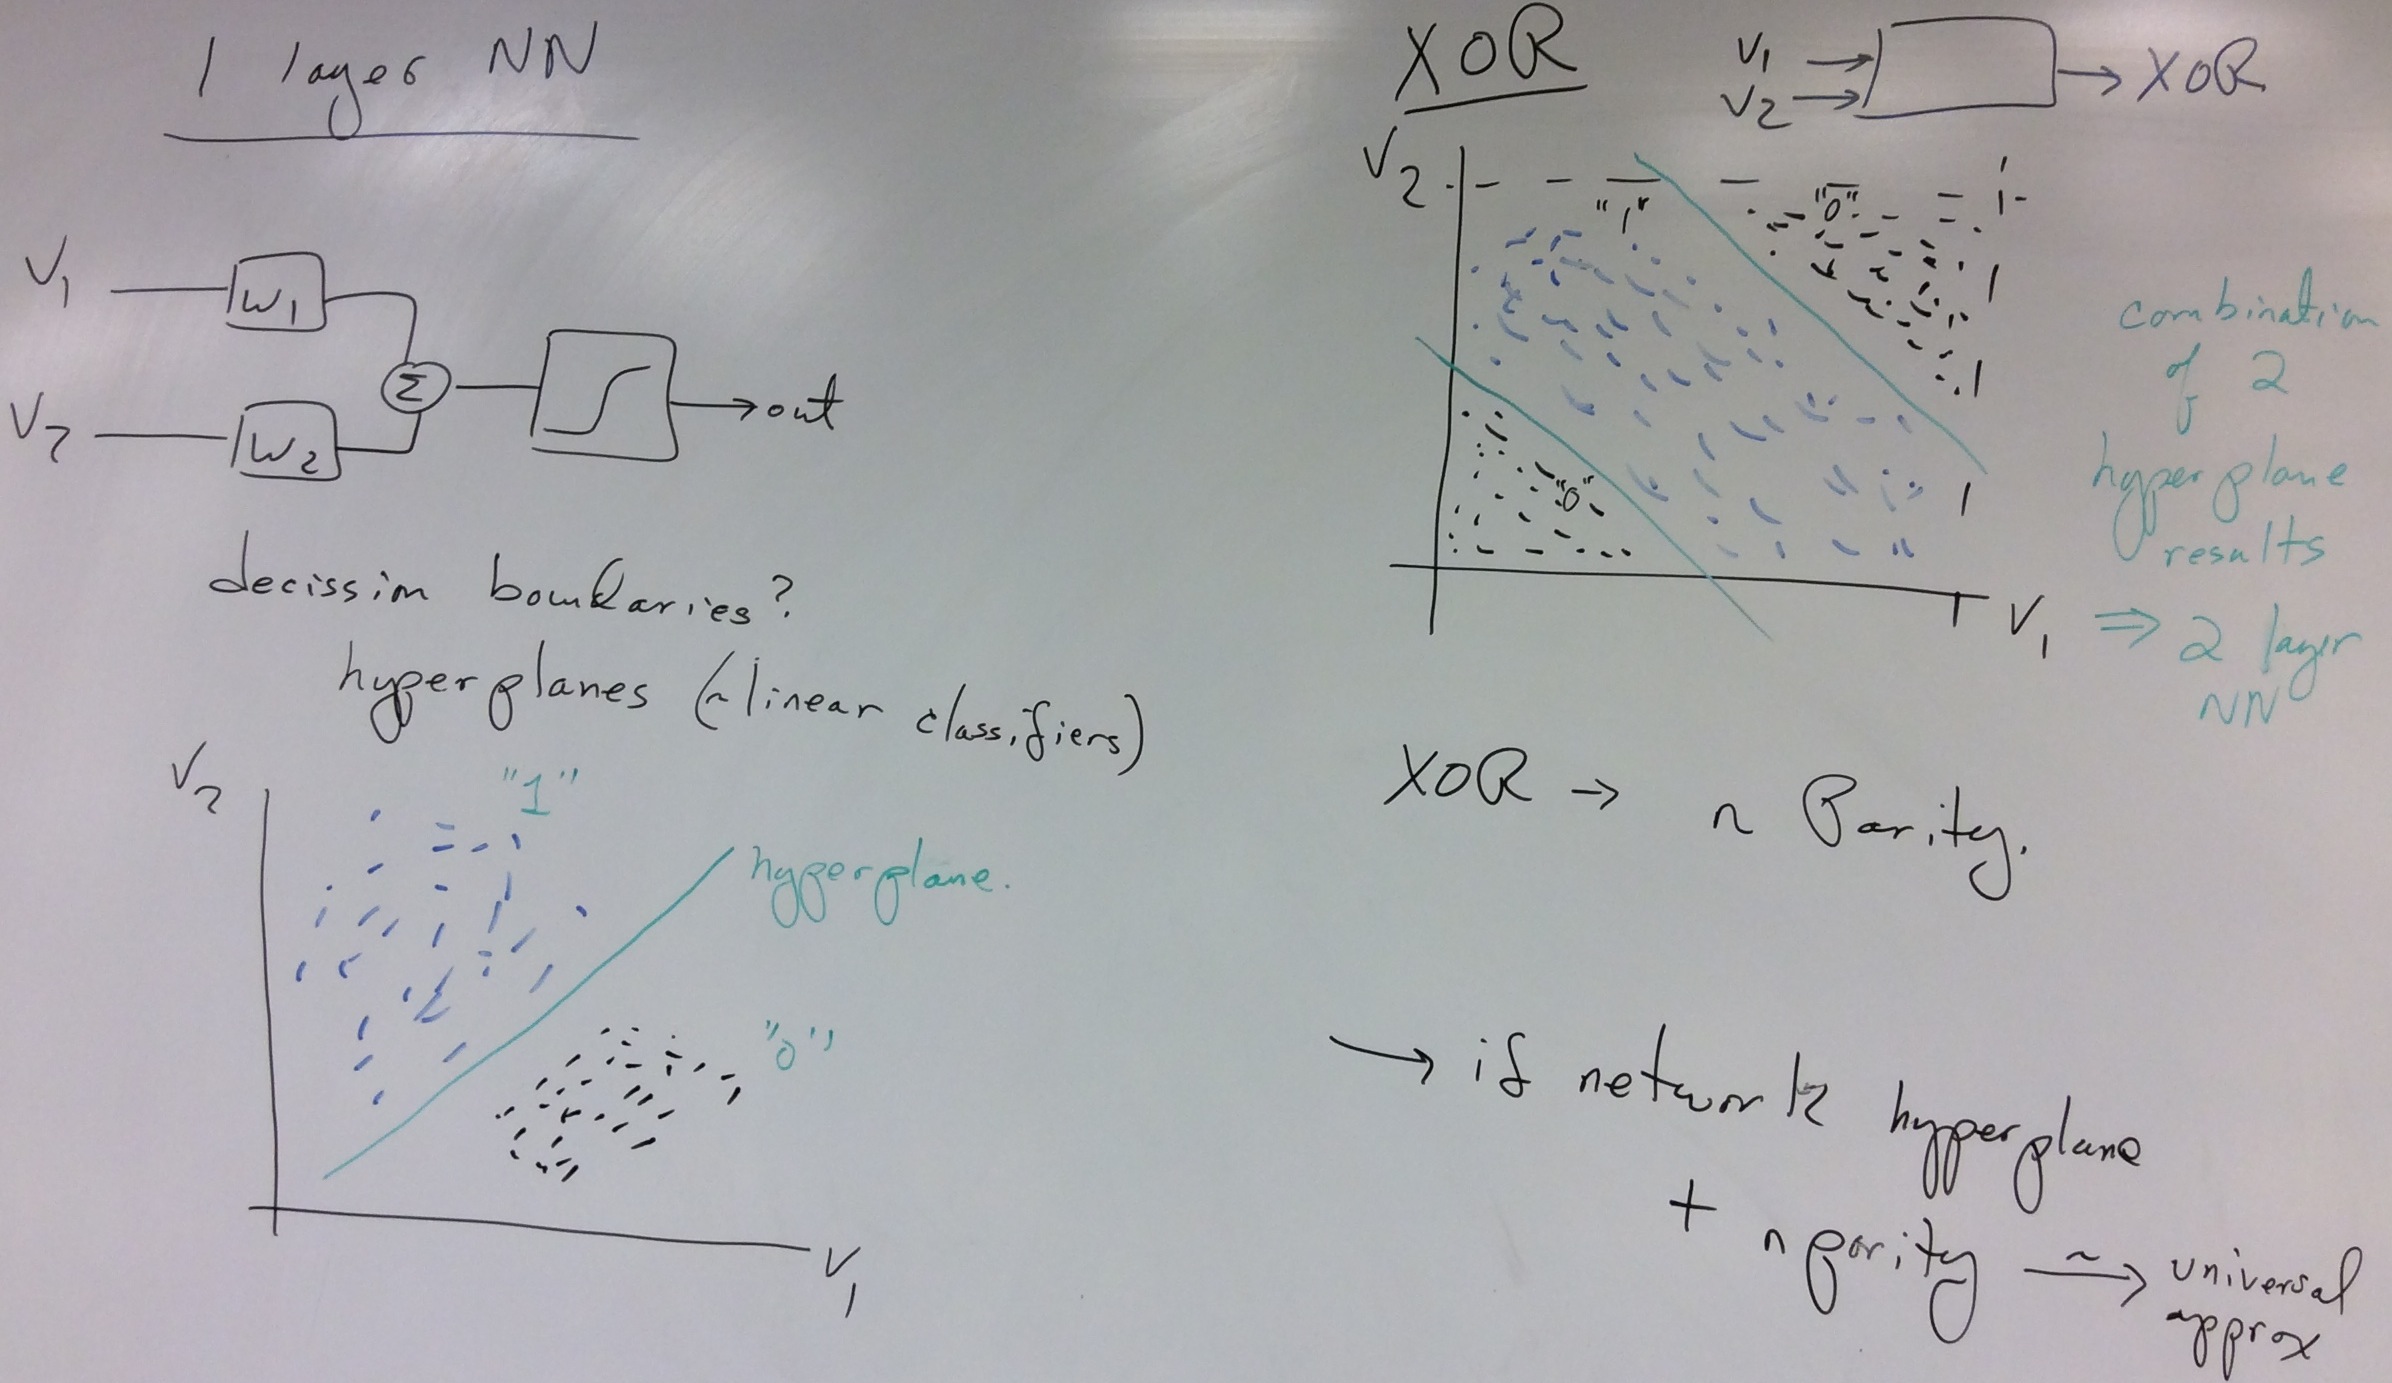 1 layer NN
V1
W1
Σ
out
V2
W2
decission boundaries?
hyperplanes (~linear classifiers)
V2
"1"
hyperplane.
"0"
V1
XOR
V1
V2
XOR
V2
"1"
"0"
"0"
V1
combination
of 2
hyperplane
results
⇒ 2 layer
NN
XOR → n Parity.
→ if network hyperplane
+ n parity ~→ universal
approx